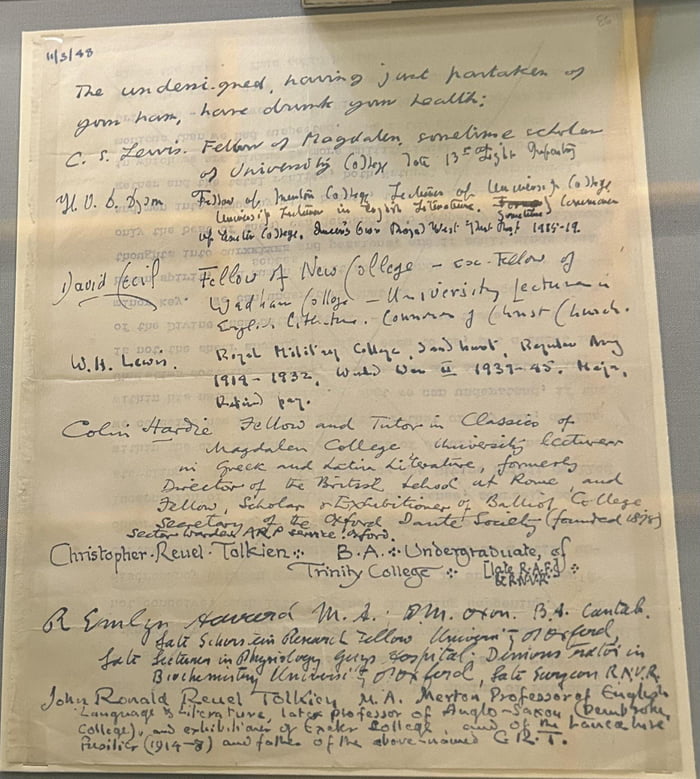 11/3/48
The undersigned, having just partaken of
your ham, have drunk your health;
C. S. Lewis. Fellow of Magdalen, sometime scholar
of University College late 13th Light Infantry
H. V. D. Dyson Fellow of Merton College Lecturer of University College,
University Lecturer in English Literature. Sometime Commoner
of Exeter College, Queen's Own Royal West Kent Regt
David Cecil. Fellow of New College – ex-Fellow of
Wadham College – University Lecturer in
English Literature. Commoner of Christ Church.
W. H. Lewis. Royal Military College, Sandhurst, Regular Army
1914–1932, World War II 1939–45. Major,
Retired pay.
Colin Hardie Fellow and Tutor in Classics of
Magdalen College University lecturer
in Greek and Latin Literature, formerly
Director of the British School at Rome, and
Fellow, Scholar & Exhibitioner of Balliol College
Secretary of the Oxford Dante Society (founded 1876)
Sector Warden ARP service Oxford.
Christopher Reuel Tolkien B.A. Undergraduate, of
Trinity College [late R.A.F.
& R.N.V.R.]
R Emlyn Havard M.A. DM. Oxon. B.A. Cantab.
Late Research Fellow University of Oxford,
Late Lecturer in Physiology Guys Hospital. Demonstrator in
Biochemistry University of Oxford, late Surgeon R.N.V.R.
John Ronald Reuel Tolkien M.A. Merton Professor of English
Language & Literature, late professor of Anglo-Saxon (Pembroke
College), and exhibitioner of Exeter College, and of the Lancashire
Fusiliers (1914–8) and father of the above-named C.R.T.